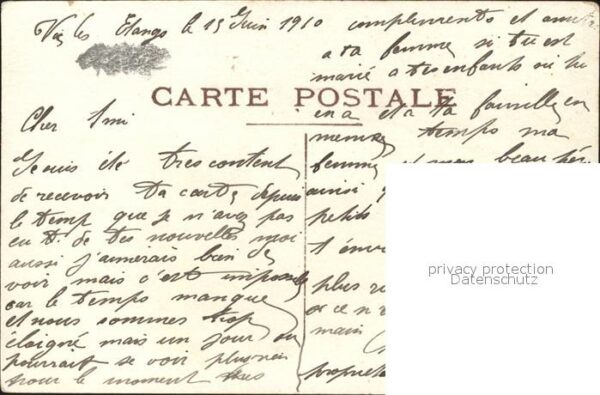 les Etangs le 15 Juin 1910
CARTE POSTALE
Cher Ami
Je suis été tres content
de recevoir ta carte depuis
le temp que je n'avez pas
eu de tes nouvelles moi
aussi j'aimerais bien de
voir mais c'est imposible
car le temps manque
et nous sommes trop
éloigné mais un jour on
pourrait se voir
pour le moment tres
compliments et
a ta femme si tu est
marié a tes enfants si tu
en a et a ta famille en
temps ma
femme beau pér
aussi
petits
plus
et ce n
main
propriet
privacy protection
Datenschutz